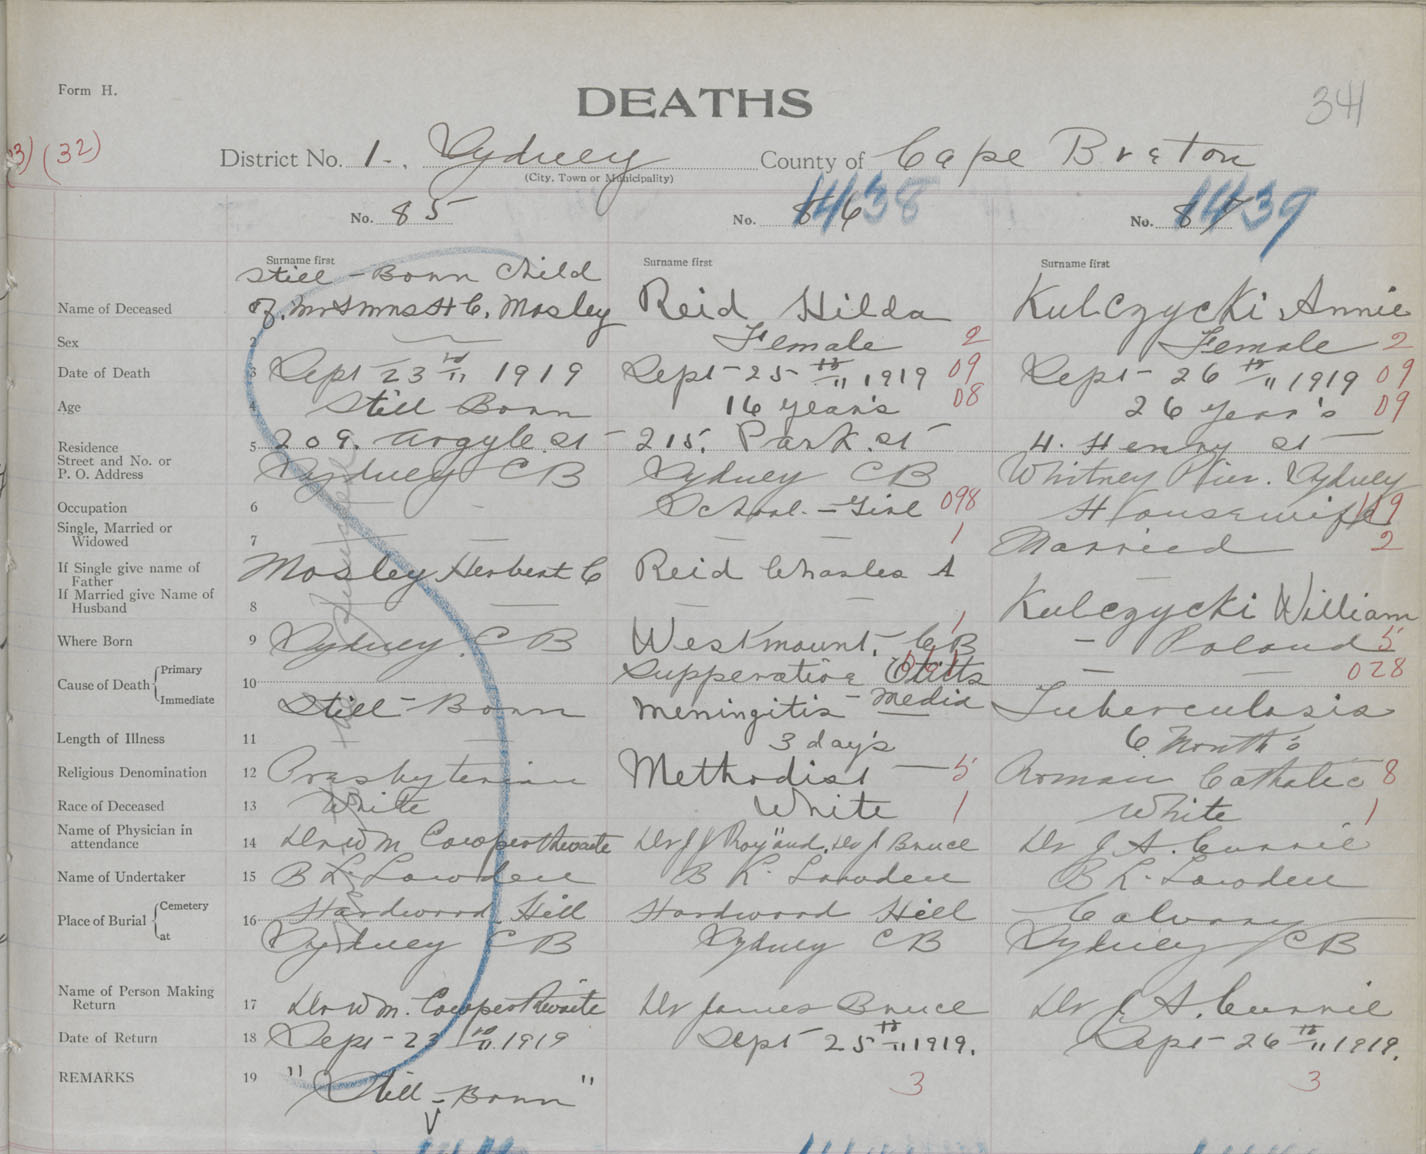 Form H.
DEATHS
341
(32)
District No. 1. Sydney County of Cape Breton
(City, Town or Municipality)
No. 85 No. 86 1438 No. 87 1439
Surname first Surname first Surname first
Still-Born Child
Name of Deceased of Mr & Mrs H C. Mosley Reid Hilda Kulczycki Annie
Sex 2 Female 2 Female 2
Date of Death 3 Sept 23 rd 1919 Sept-25 th 1919 09 Sept-26 th 1919 09
Age 4 Still Born 16 year's 08 26 year's 09
Residence 5 209. Argyle. St 215. Park. St 4. Henry St
Street and No. or
P. O. Address Sydney C B Sydney C B Whitney Pier. Sydney
Occupation 6 - - School-Girl 098 Housewife 119
Single, Married or
Widowed 7 — — — — 1 Married 2
If Single give name of
Father Mosley Herbert C Reid Charles A —
If Married give Name of
Husband 8 — — — — Kulczycki William
Where Born 9 Sydney. C B Westmount, C B 1 - Poland 5
Cause of Death Primary 10 Supperative Otitis Media — — 028
Immediate Still-Born Meningitis Tuberculosis
Length of Illness 11 — — 3 day's 6 Month's
Religious Denomination 12 Presbyterian Methodist 5 Roman Catholic 8
Race of Deceased 13 White White 1 White 1
Name of Physician in
attendance 14 Dr Wm Cowperthwaite Dr J J Roy "and. Dr J Bruce Dr J. A. Currie
Name of Undertaker 15 B L. Lowden B L. Lowden B L. Lowden
Place of Burial Cemetery 16 Hardwood Hill Hardwood Hill Calvary
at Sydney C B Sydney C B Sydney C B
Name of Person Making
Return 17 Dr Wm. Cowperthwaite Dr James Bruce Dr J. A. Currie
Date of Return 18 Sept-23 rd 1919 Sept 25 th 1919. Sept-26 th 1919.
REMARKS 19 "Still-Born" 3 3